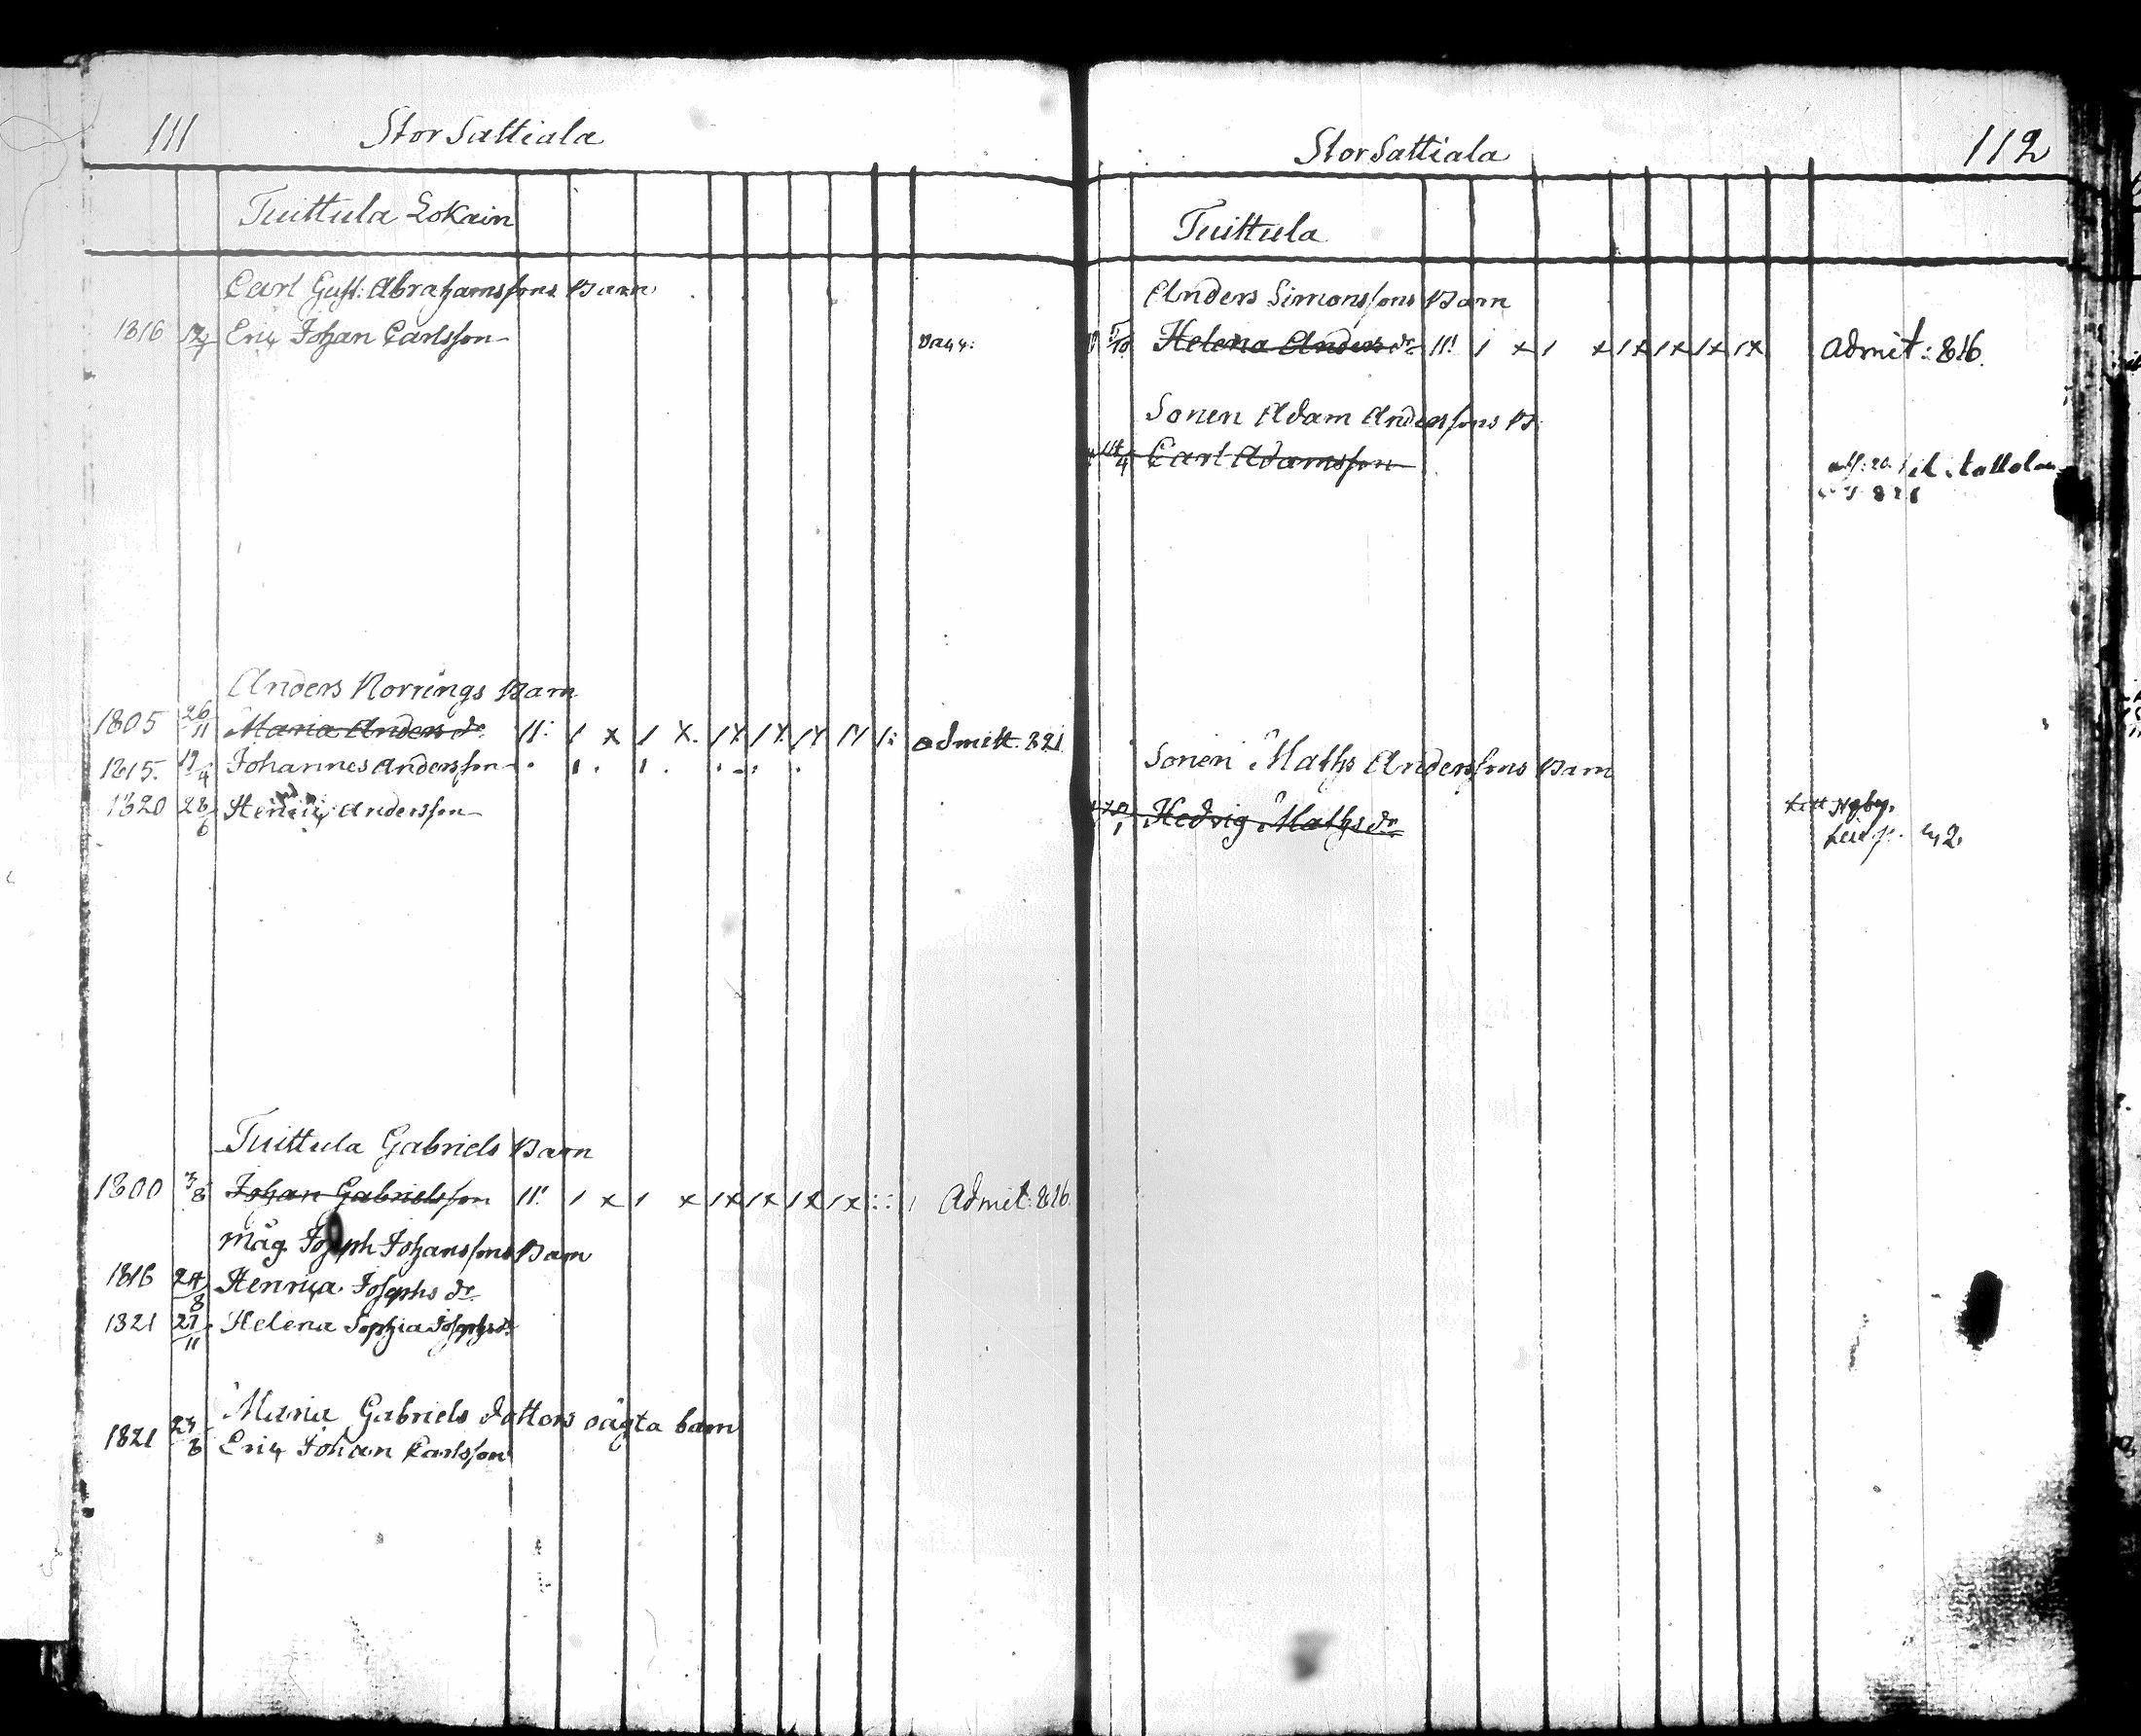 111 Stor Sattiala
Tuittula Lokain
Carl Gust: Abrahamssons Barn
1816 Eric Johan Carlsson
Anders Norrings Barn
1805 26/11 Maria Anders dr 11: 1 x 1 x. 1x 1x 1x admitt. 821
1815. 19/4 Johannes Andersson
1820 28/6 Henric Andersson
Tuittula Gabriels Barn
1800 3/8 Johan Gabrielsson 11! 1 x 1 x 1x 1x 1x 1x :: 1 Admit: 816.
Måg Joseph Johanssons Barn
1816 24/8 Henrica Josephs dr
1821 27/11 Helena Sophia Josephs dr
Maria Gabriels dotters oägta barn
1821 Eric Johan Carlsson
Stor Sattiala 112
Tuittula
Anders Simonssons Barn
Helena Anders dr 11! 1 x 1 x 1x 1x 1x 1x Admit: 816.
Sonen Adam Anderssons B:
Carl Adamsson
Sonen Mathts Anderssons Barn
Hedvig Mathts dr